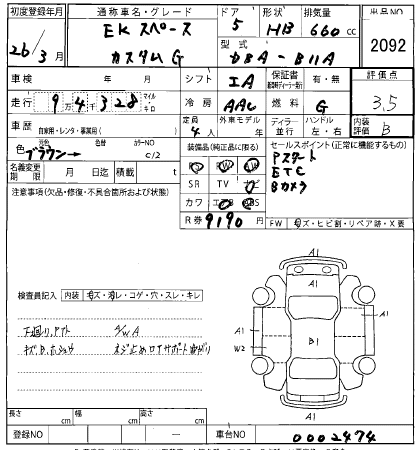 初度登録年月 通称車名・グレード ドア 形状 排気量 出品NO
26年 3月 EKスペース カスタムG 5 HB 660cc 2092
型式 DBA-B11A
車検 年 月 シフト IA 保証書 有・無 評価点 3.5
走行 9万4千328 マイル・キロ 冷房 AAC 燃料 G
車歴 自家用・レンタ・事業用( ) 定員 4人 外車モデル 年 ディーラー 並行 ハンドル 左・右 内装評価 B
色 元色 ブラウン→ 色替 カラーNO C/2
装備品(純正品に限る) PS PW AW
セールスポイント(正常に機能するもの)
Pスタート
ETC
Bカメラ
名義変更期限 月 日迄 積載 t SR TV ナビ
注意事項(欠品・修復・不具合箇所および状態) カワ エアB ABS
R券 9190円 FW キズ・ヒビ割・リペア跡・X要
検査員記入 内装 キズ・汚レ・コゲ・穴・スレ・キレ
下廻り、サビ S/W A
キズ、B、ホシュウ ネジ止め ロアサポート曲がり
A1
A1 A1
W2 B1
A1
長さ cm 幅 cm 高さ cm
登録NO 車台NO 0002474